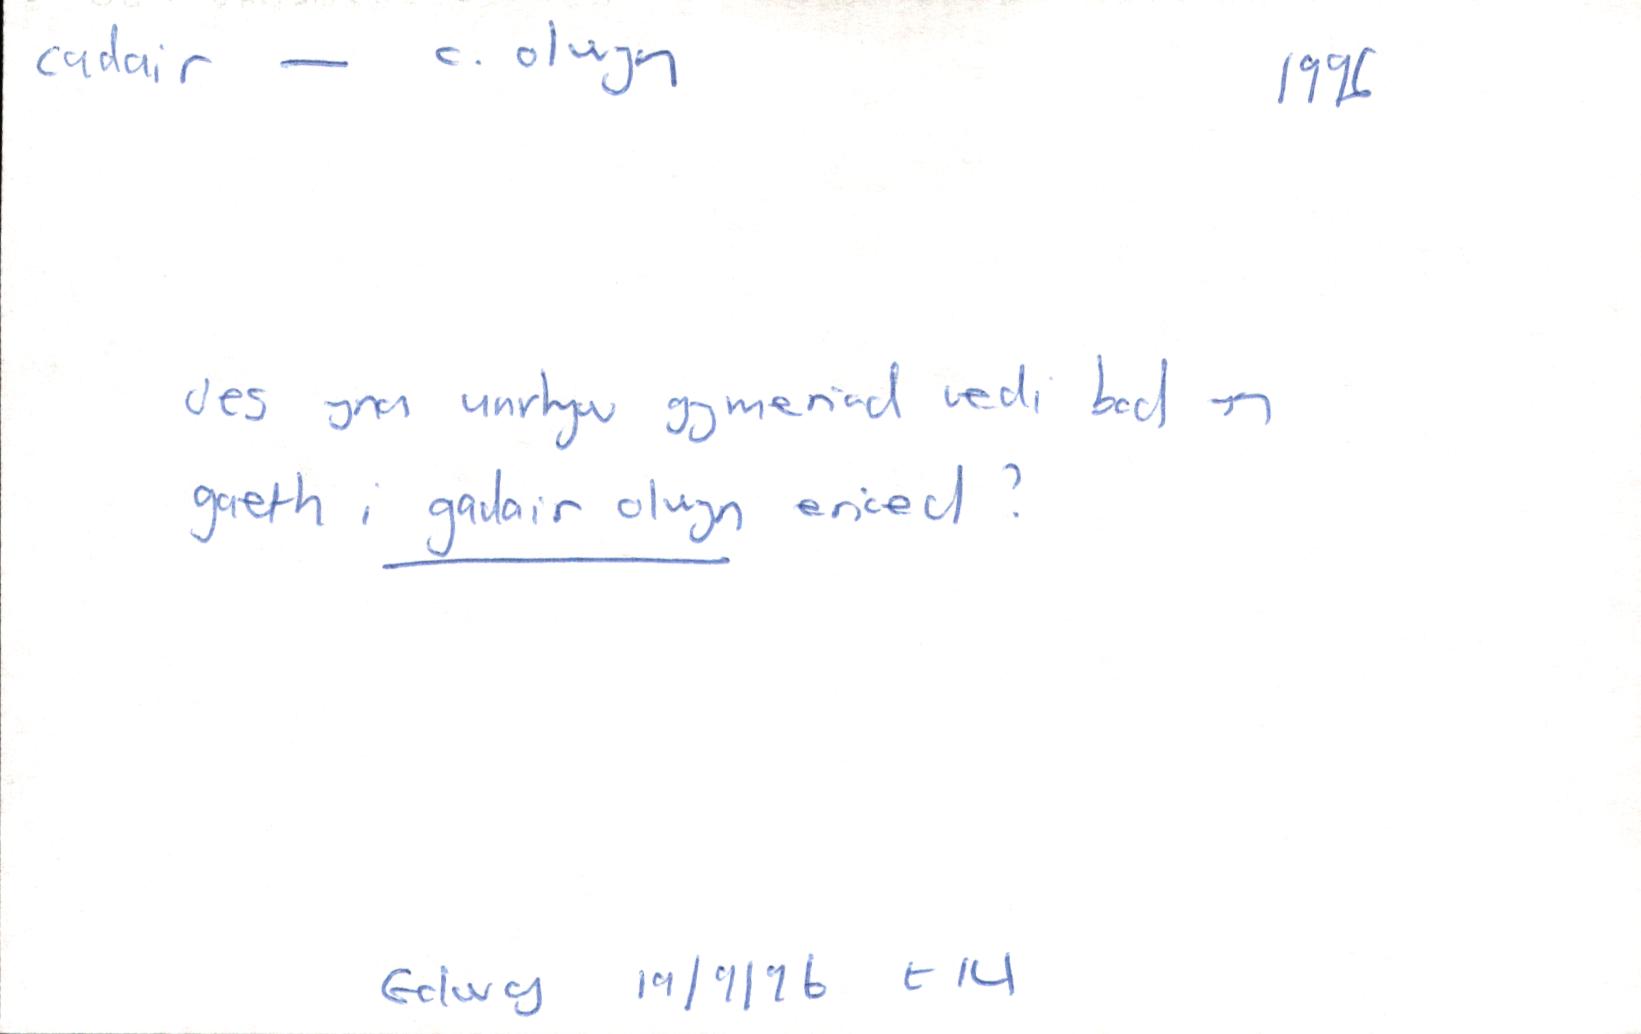 cadair — c. olwyn 1996
oes yna unrhyw gymeriad wedi bod yn
gaeth i gadair olwyn erioed?
Golwg 19/9/96 t 14